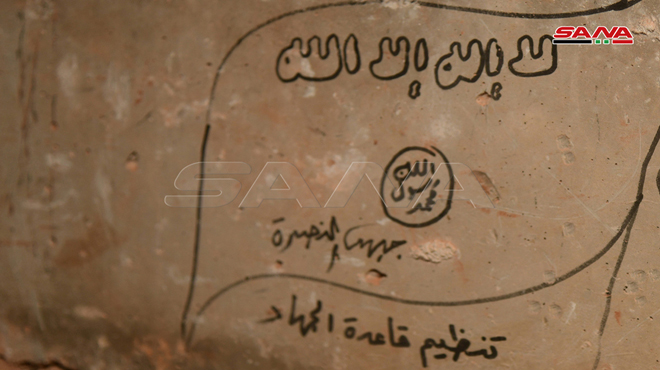 SANA
لا إله إلا الله
الله
رسول
محمد
SANA
جبهة النصرة
تنظيم قاعدة الجهاد